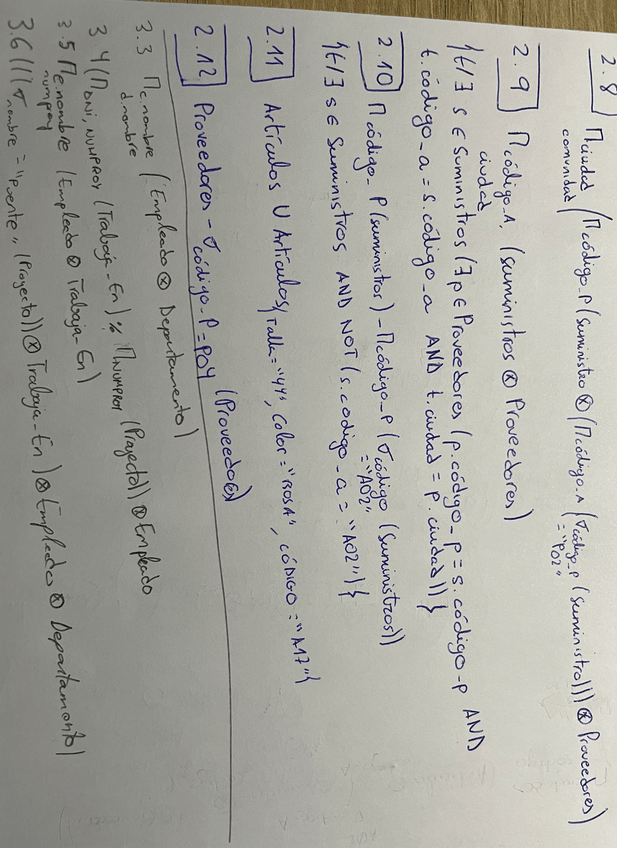 2.8
Π ciudad comunidad (Π código_P (Suministro ⊗ (Π código_A (σ código_P = "P02" (Suministro))) ⊗ Proveedores)
2.9 Π código_A, ciudad (Suministros ⊗ Proveedores)
{t/∃ s ∈ Suministros (∃ p ∈ Proveedores (p.código_p = s.código_p AND
t.código_a = s.código_a AND t.ciudad = p.ciudad))}
2.10 Π código_P (Suministros) - Π código_P (σ código = "A02" (Suministros))
{t/∃ s ∈ Suministros AND NOT (s.codigo_a = "A02")}
2.11 Artículos U Artículos{Talla="4Y", Color="ROSA", CÓDIGO="A17"}
2.12 Proveedores - σ código_P=P04 (Proveedores)
3.3 Π e.nombre d.nombre (Empleado ⊗ Departamento)
3 4 (Π DNI, NUMPROY (Trabaja_En) % Π NUMPROY (Proyecto)) ⊗ Empleado
3.5 Π e.nombre numproy (Empleado ⊗ Trabaja_En)
3.6 ((((σ nombre = "Puente" (Proyecto)) ⊗ Trabaja_En) ⊗ Empleado ⊗ Departamento)